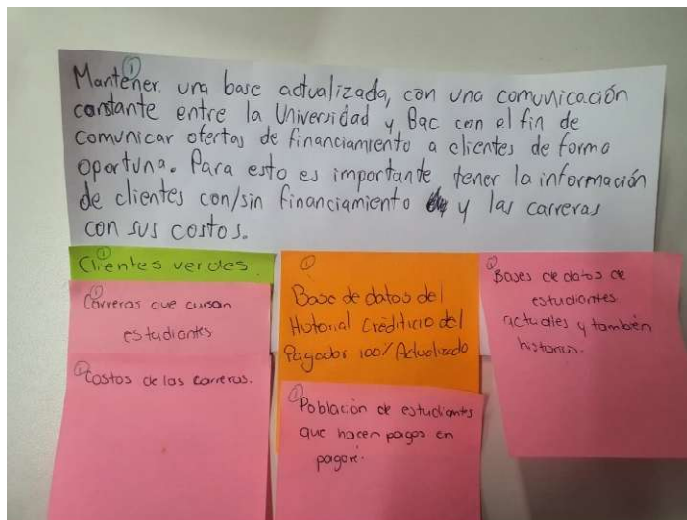 ①
Mantener una base actualizada, con una comunicación
constante entre la Universidad y Bac con el fin de
comunicar ofertas de financiamiento a clientes de forma
oportuna. Para esto es importante tener la información
de clientes con/sin financiamiento y las carreras
con sus costos.
①
Clientes verdes.
①
Carreras que cursan
estudiantes
①
Costos de las carreras.
①
Base de datos del
Historial Crediticio del
Pagador 100% Actualizado
①
Población de estudiantes
que hacen pagos en
pagaré.
①
Bases de datos de
estudiantes
actuales y también